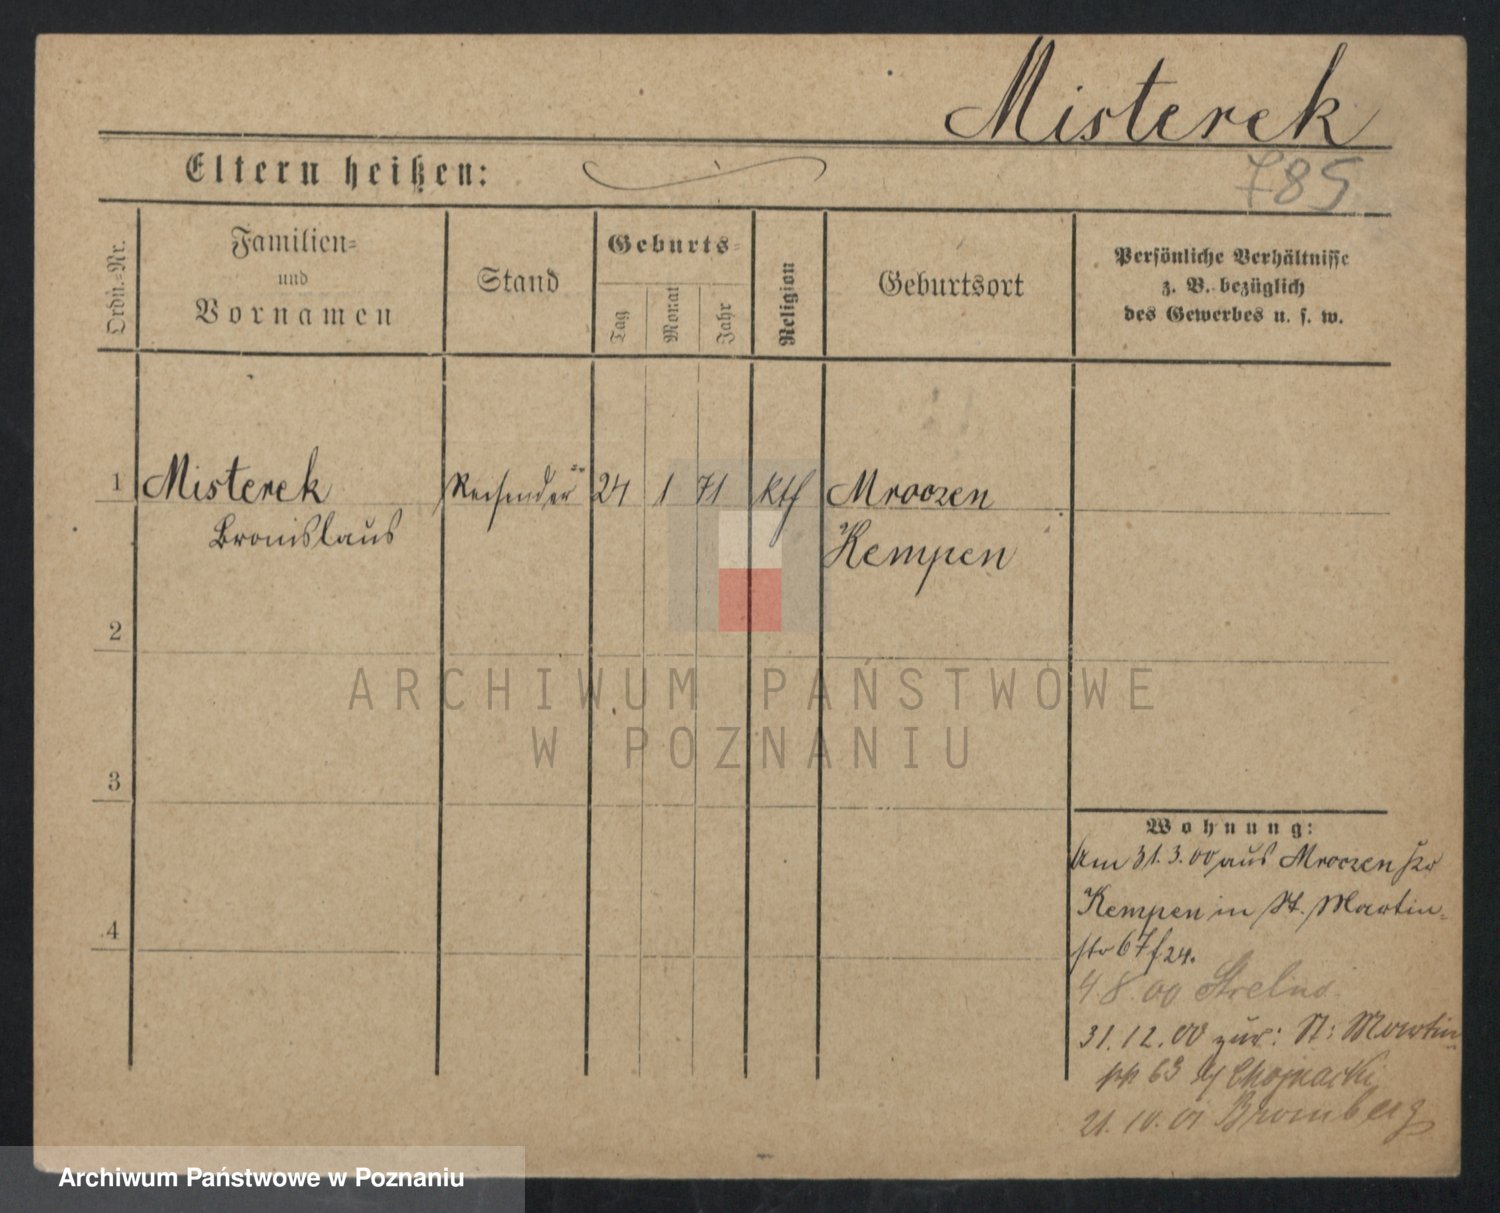 Misterek
Eltern heißen:
785
Ordn.-Nr.
Familien-
und
Vornamen
Stand
Geburts-
Tag
Monat
Jahr
Religion
Geburtsort
Persönliche Verhältnisse
z. B. bezüglich
des Gewerbes u. s. w.
1 Misterek Reisender 24 1 71 kth Mroczen
Bronislaus Kempen
2
3
4
Wohnung:
Am 31.3.00 aus Mroczen Kr
Kempen in St. Martin-
str 67 f 24.
4.8.00 Strelno
31.12.00 zur: St: Martin
63 Chojnacki
21.10.01 Bromberg
ARCHIWUM PAŃSTWOWE
W POZNANIU
Archiwum Państwowe w Poznaniu